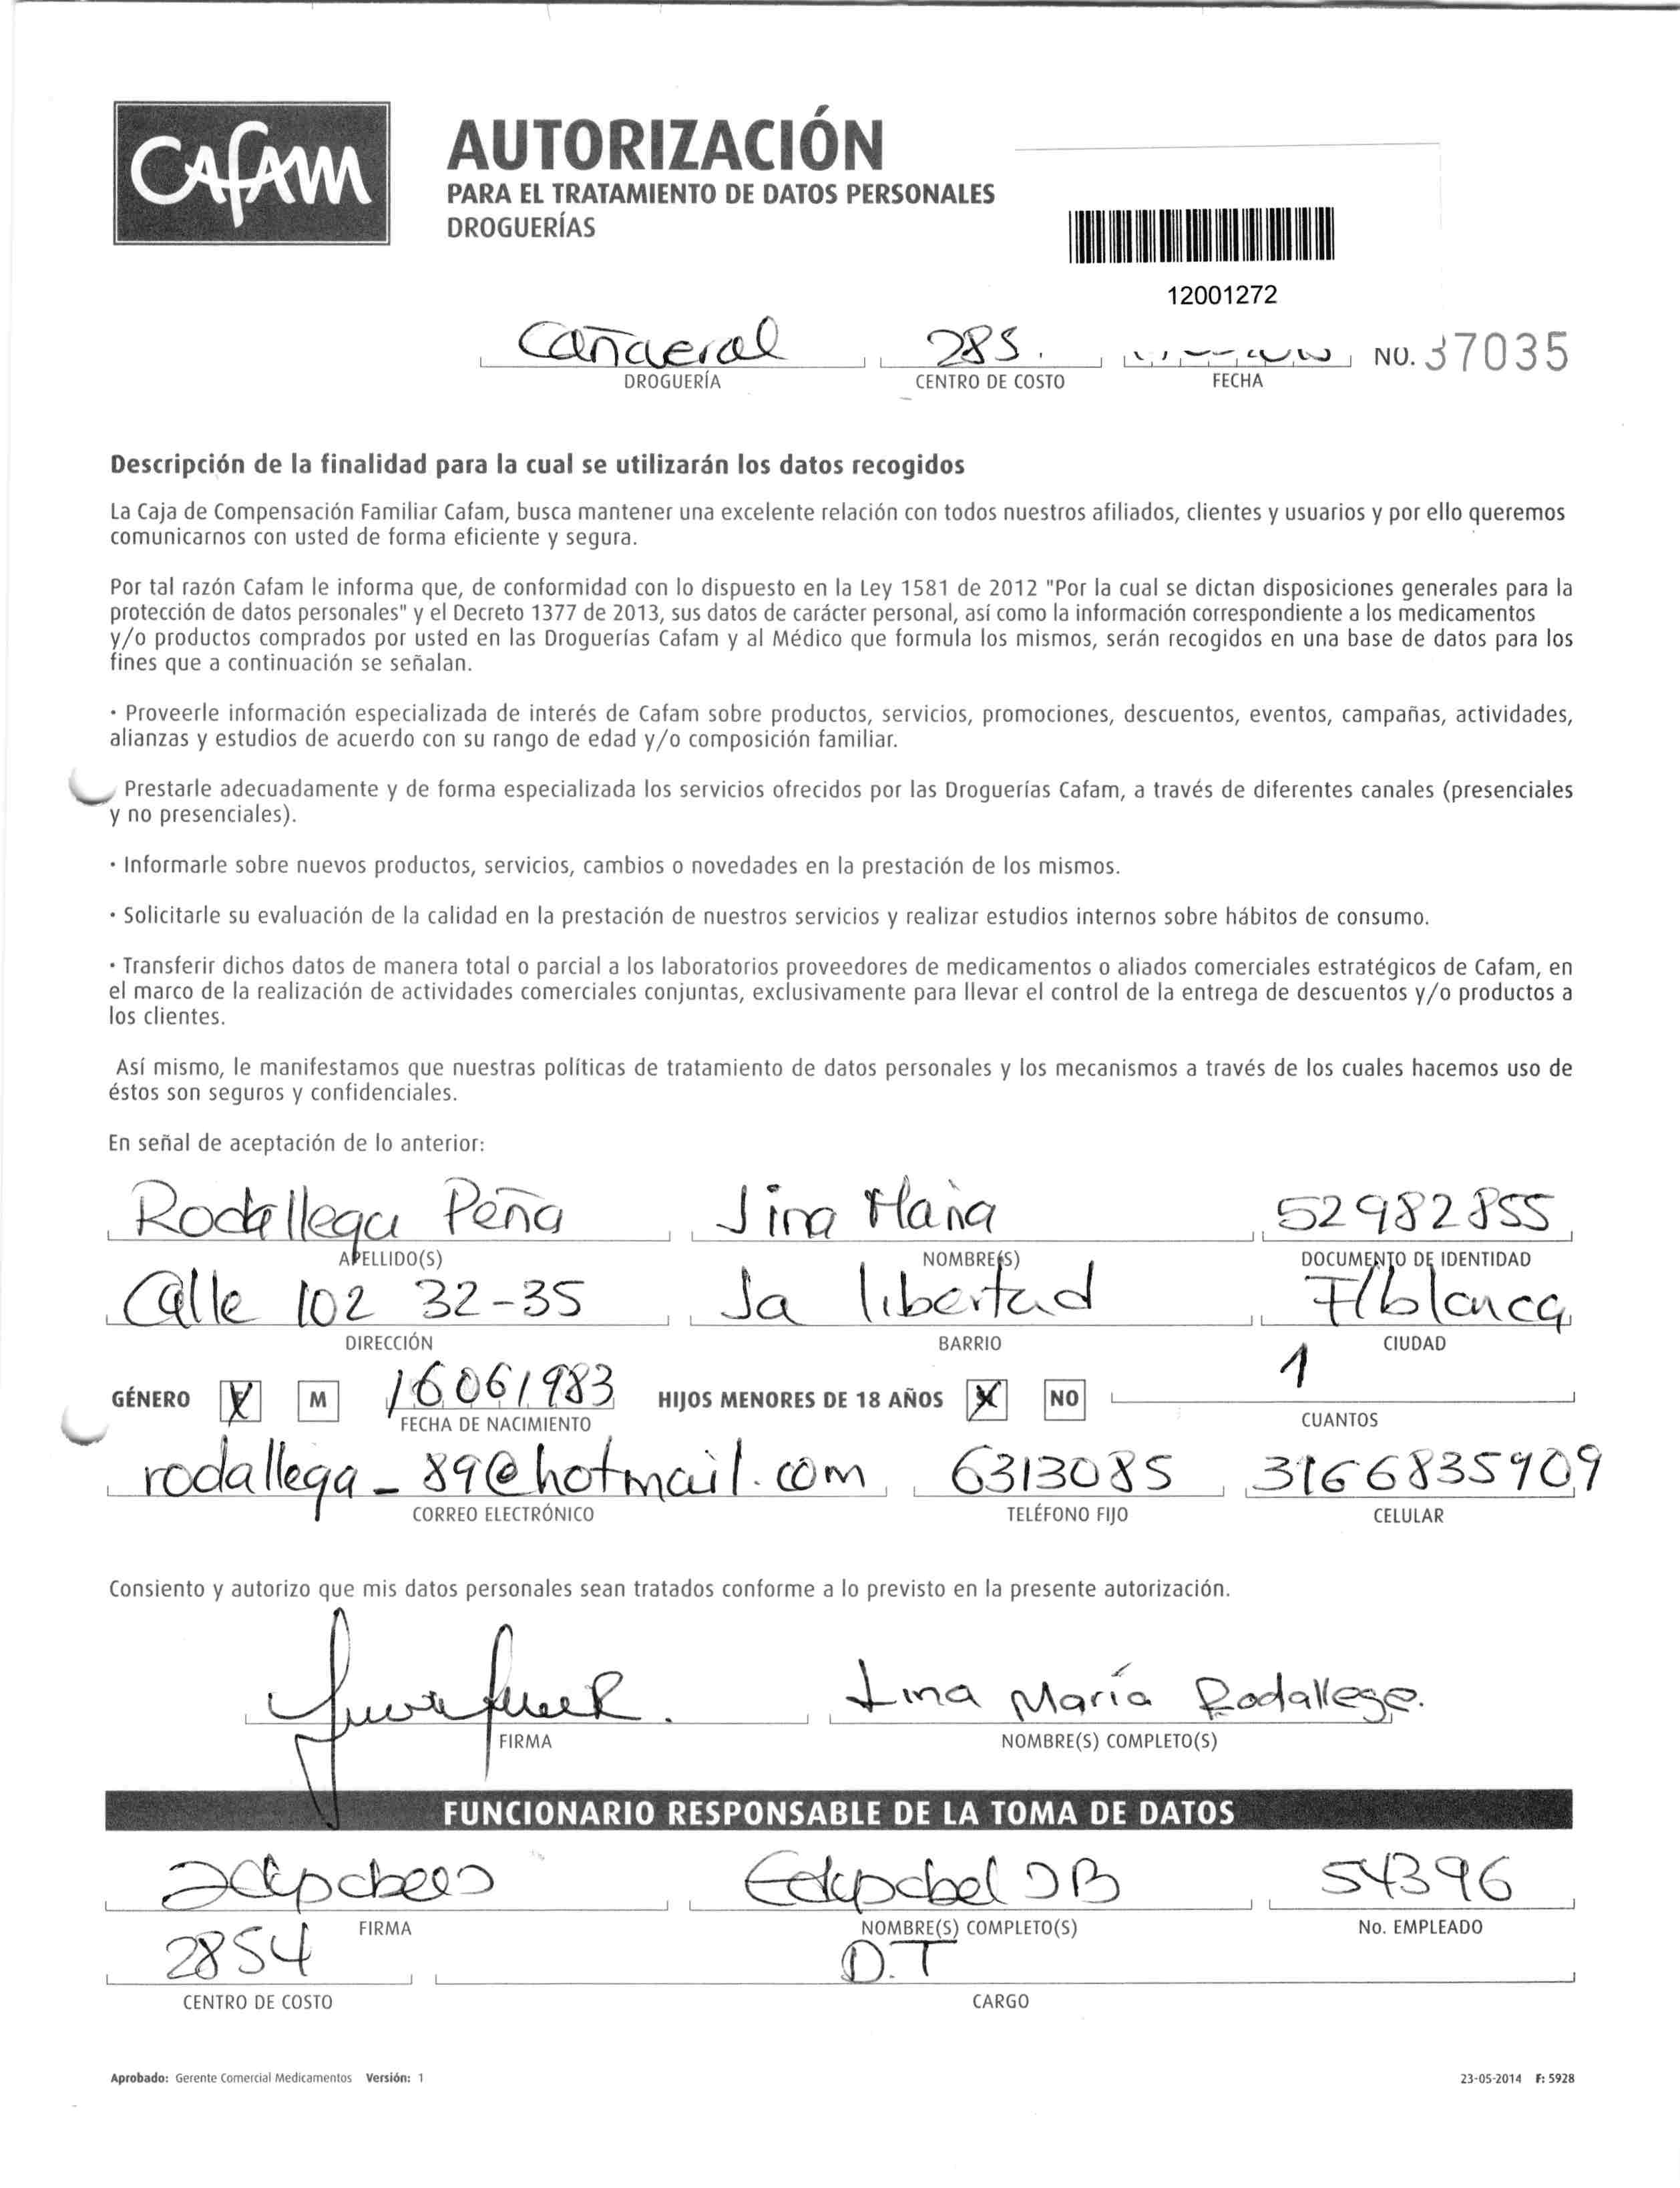 CAFAM
AUTORIZACIÓN
PARA EL TRATAMIENTO DE DATOS PERSONALES
DROGUERÍAS
12001272
Cañaveral 285. NO. 37035
DROGUERÍA CENTRO DE COSTO FECHA
Descripción de la finalidad para la cual se utilizarán los datos recogidos
La Caja de Compensación Familiar Cafam, busca mantener una excelente relación con todos nuestros afiliados, clientes y usuarios y por ello queremos
comunicarnos con usted de forma eficiente y segura.
Por tal razón Cafam le informa que, de conformidad con lo dispuesto en la Ley 1581 de 2012 "Por la cual se dictan disposiciones generales para la
protección de datos personales" y el Decreto 1377 de 2013, sus datos de carácter personal, así como la información correspondiente a los medicamentos
y/o productos comprados por usted en las Droguerías Cafam y al Médico que formula los mismos, serán recogidos en una base de datos para los
fines que a continuación se señalan.
· Proveerle información especializada de interés de Cafam sobre productos, servicios, promociones, descuentos, eventos, campañas, actividades,
alianzas y estudios de acuerdo con su rango de edad y/o composición familiar.
Prestarle adecuadamente y de forma especializada los servicios ofrecidos por las Droguerías Cafam, a través de diferentes canales (presenciales
y no presenciales).
· Informarle sobre nuevos productos, servicios, cambios o novedades en la prestación de los mismos.
· Solicitarle su evaluación de la calidad en la prestación de nuestros servicios y realizar estudios internos sobre hábitos de consumo.
· Transferir dichos datos de manera total o parcial a los laboratorios proveedores de medicamentos o aliados comerciales estratégicos de Cafam, en
el marco de la realización de actividades comerciales conjuntas, exclusivamente para llevar el control de la entrega de descuentos y/o productos a
los clientes.
Así mismo, le manifestamos que nuestras políticas de tratamiento de datos personales y los mecanismos a través de los cuales hacemos uso de
éstos son seguros y confidenciales.
En señal de aceptación de lo anterior:
Rodallega Peña Lina Maria 52982855
APELLIDO(S) NOMBRE(S) DOCUMENTO DE IDENTIDAD
Calle 102 32-35 La libertad F/blanca
DIRECCIÓN BARRIO CIUDAD
GÉNERO X M 16061983 HIJOS MENORES DE 18 AÑOS X NO 1
FECHA DE NACIMIENTO CUANTOS
rodallega_89@hotmail.com 6313085 3166835909
CORREO ELECTRÓNICO TELÉFONO FIJO CELULAR
Consiento y autorizo que mis datos personales sean tratados conforme a lo previsto en la presente autorización.
Lina María Rodallega.
FIRMA NOMBRE(S) COMPLETO(S)
FUNCIONARIO RESPONSABLE DE LA TOMA DE DATOS
54396
FIRMA NOMBRE(S) COMPLETO(S) No. EMPLEADO
2854 D.T
CENTRO DE COSTO CARGO
Aprobado: Gerente Comercial Medicamentos Versión: 1 23-05-2014 F: 5928